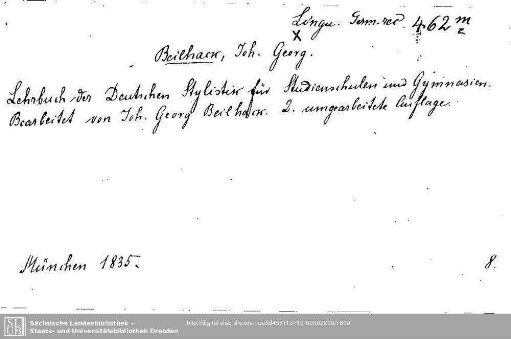 Lingu. Germ. rec. 462 m
x z
Beilhack, Joh. Georg.
Lehrbuch der Deutschen Stylistik für Studienschulen und Gymnasien.
Bearbeitet von Joh. Georg Beilhack. 2. umgearbeitete Auflage.
München 1835. 8.
SLUB Sächsische Landesbibliothek –
Staats- und Universitätsbibliothek Dresden